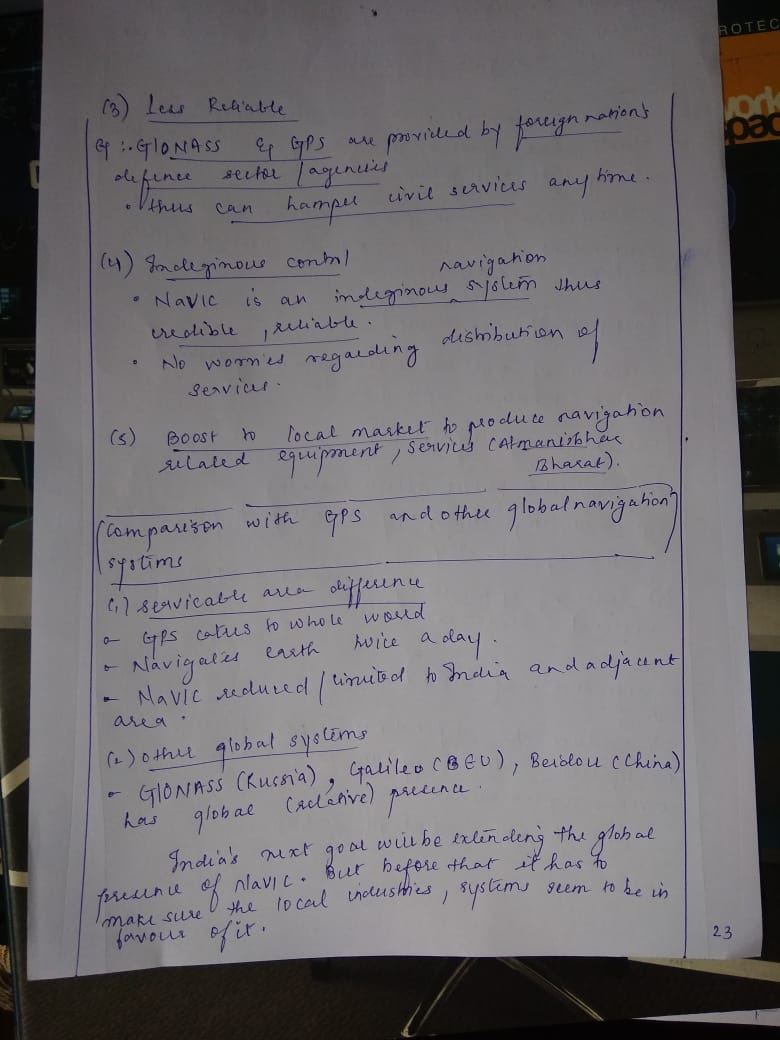 ROTEC
work
spac
(3) Less Reliable
Eg :- GlONASS & GPS are provided by foreign nation's
defence sector / agencies
• thus can hamper civil services any time.
(4) Indeginous control
navigation
• NavIC is an indeginous system thus
credible, reliable.
• No worries regarding distribution of
services.
(5) Boost to local market to produce navigation
related equipment, services (Atmanirbhar
Bharat).
Comparison with GPS and other global navigation
systems
(1) Servicable area difference
- GPS caters to whole world
- Navigates earth twice a day.
- NavIC reduced / limited to India and adjacent
area.
(2) other global systems
- GlONASS (Russia), Galileo (EU), Beidou (China)
has global (relative) presence.
India's next goal will be extending the global
presence of NavIC. But before that it has to
make sure the local industries, systems seem to be in
favour of it.
23